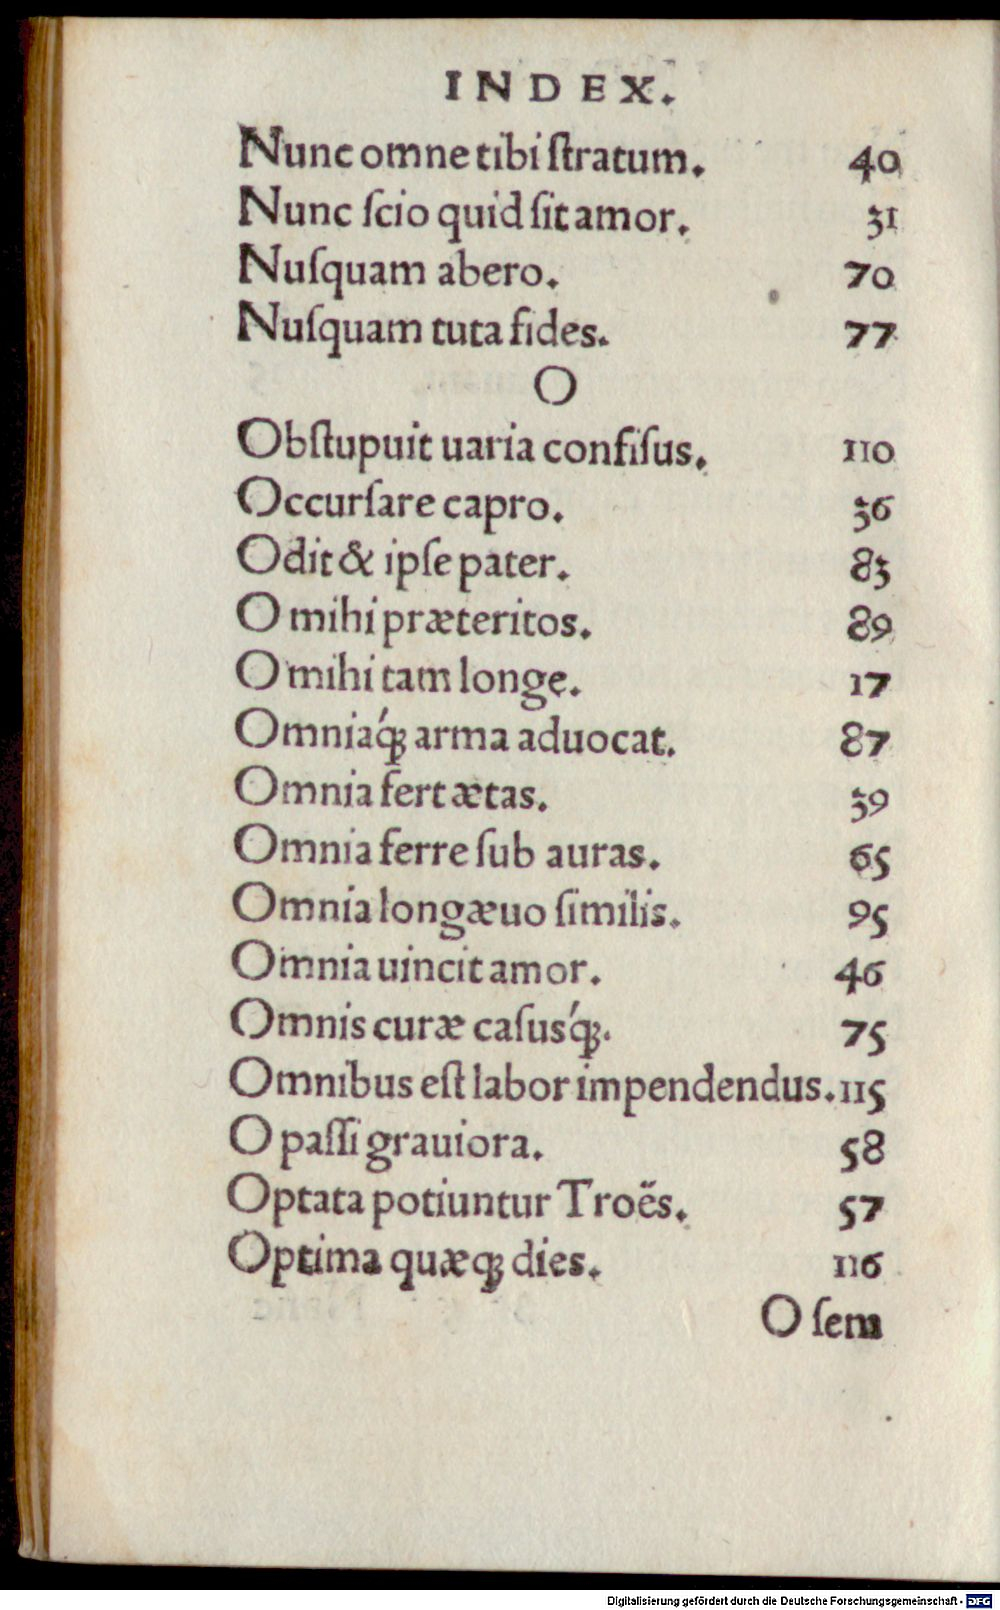 INDEX.
Nunc omne tibi ſtratum. 40
Nunc ſcio quid ſit amor. 31
Nuſquam abero. 70
Nuſquam tuta fides. 77
O
Obſtupuit uaria confiſus. 110
Occurſare capro. 36
Odit & ipſe pater. 83
O mihi præteritos. 89
O mihi tam longe. 17
Omniaq́ꝫ arma aduocat. 87
Omnia fert ætas. 39
Omnia ferre ſub auras. 65
Omnia longæuo ſimilis. 95
Omnia uincit amor. 46
Omnis curæ caſusq́ꝫ. 75
Omnibus eſt labor impendendus. 115
O paſſi grauiora. 58
Optata potiuntur Troës. 57
Optima quæqꝫ dies. 116
O ſem
Digitalisierung gefördert durch die Deutsche Forschungsgemeinschaft - DFG